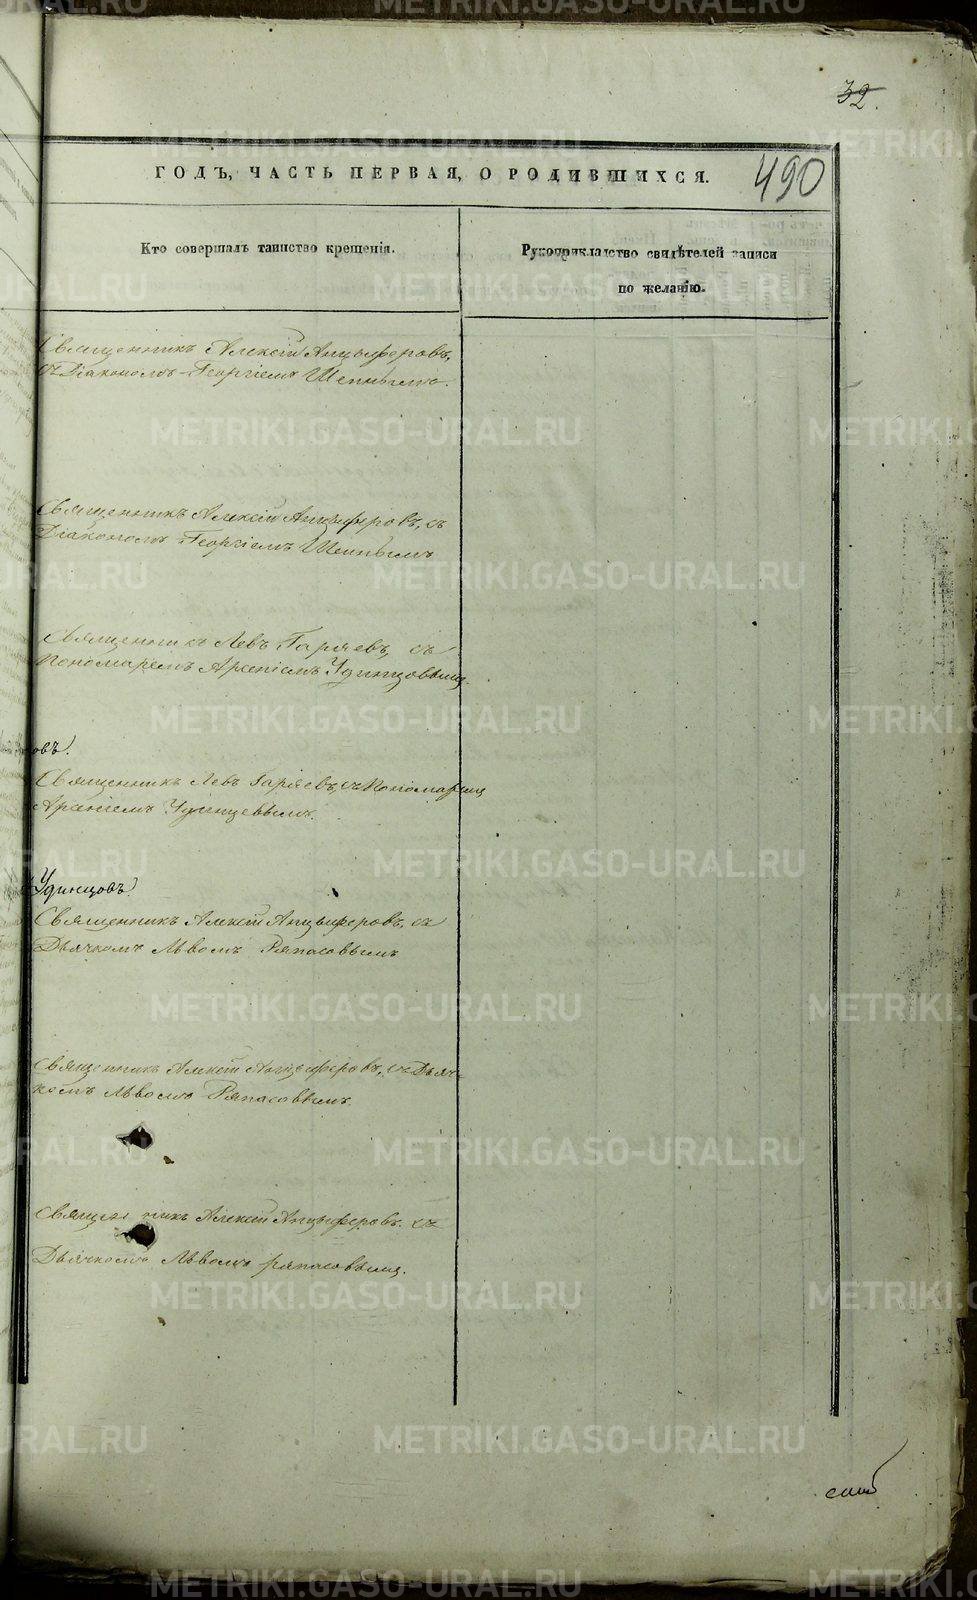 32.
490
ГОДЪ, ЧАСТЬ ПЕРВАЯ, О РОДИВШИХСЯ.
Кто совершалъ таинство крещенія.
Рукоприкладство свидѣтелей записи
по желанію.
Священникъ Алексій Анцыферовъ,
съ Діакономъ Георгіемъ
Священникъ Алексій Анцыферовъ, съ
Діакономъ Георгіемъ
Священникъ Левъ Гаряевъ, съ
Пономаремъ Арсеніемъ Удинцовымъ.
овъ.
Священникъ Левъ Гаряевъ, съ Пономаремъ
Арсеніемъ Удинцевымъ.
Удинцовъ
Священникъ Алексій Анцыферовъ, съ
Дьячкомъ Львомъ Ряпасовымъ
Священникъ Алексій Анцыферовъ, съ Дьяч-
комъ Львомъ Ряпасовымъ.
Священникъ Алексій Анцыферовъ. съ
Дьячкомъ Львомъ ряпасовымъ.
METRIKI.GASO-URAL.RU